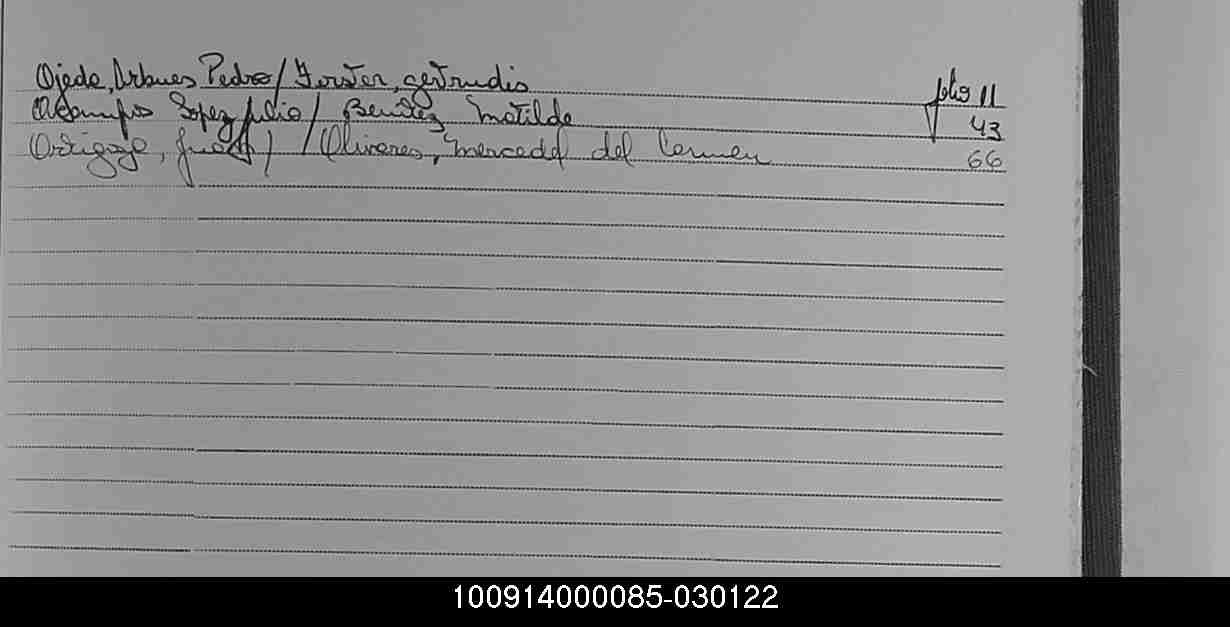 Ojeda, Urbues Pedro / Forster, gertrudis folio 11
Ocampos Lopez Julio / Benitez Matilde 43
Ortigoza, Juan / Olivares, Mercedes del Carmen 66
100914000085-030122